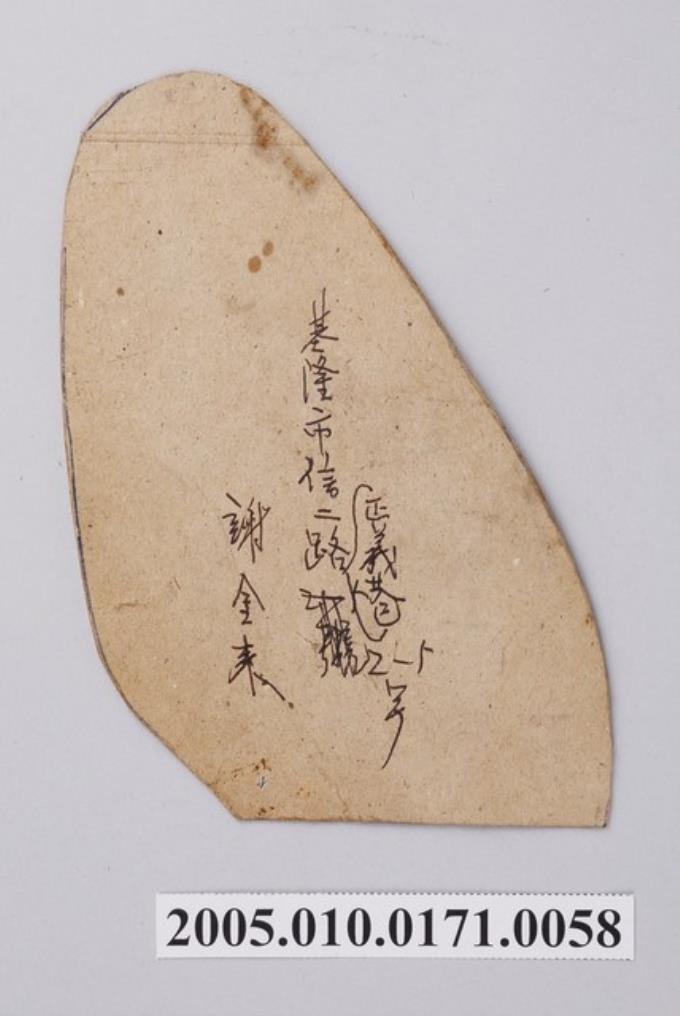 基隆市信二路
正義巷2-5号
謝金表
2005.010.0171.0058